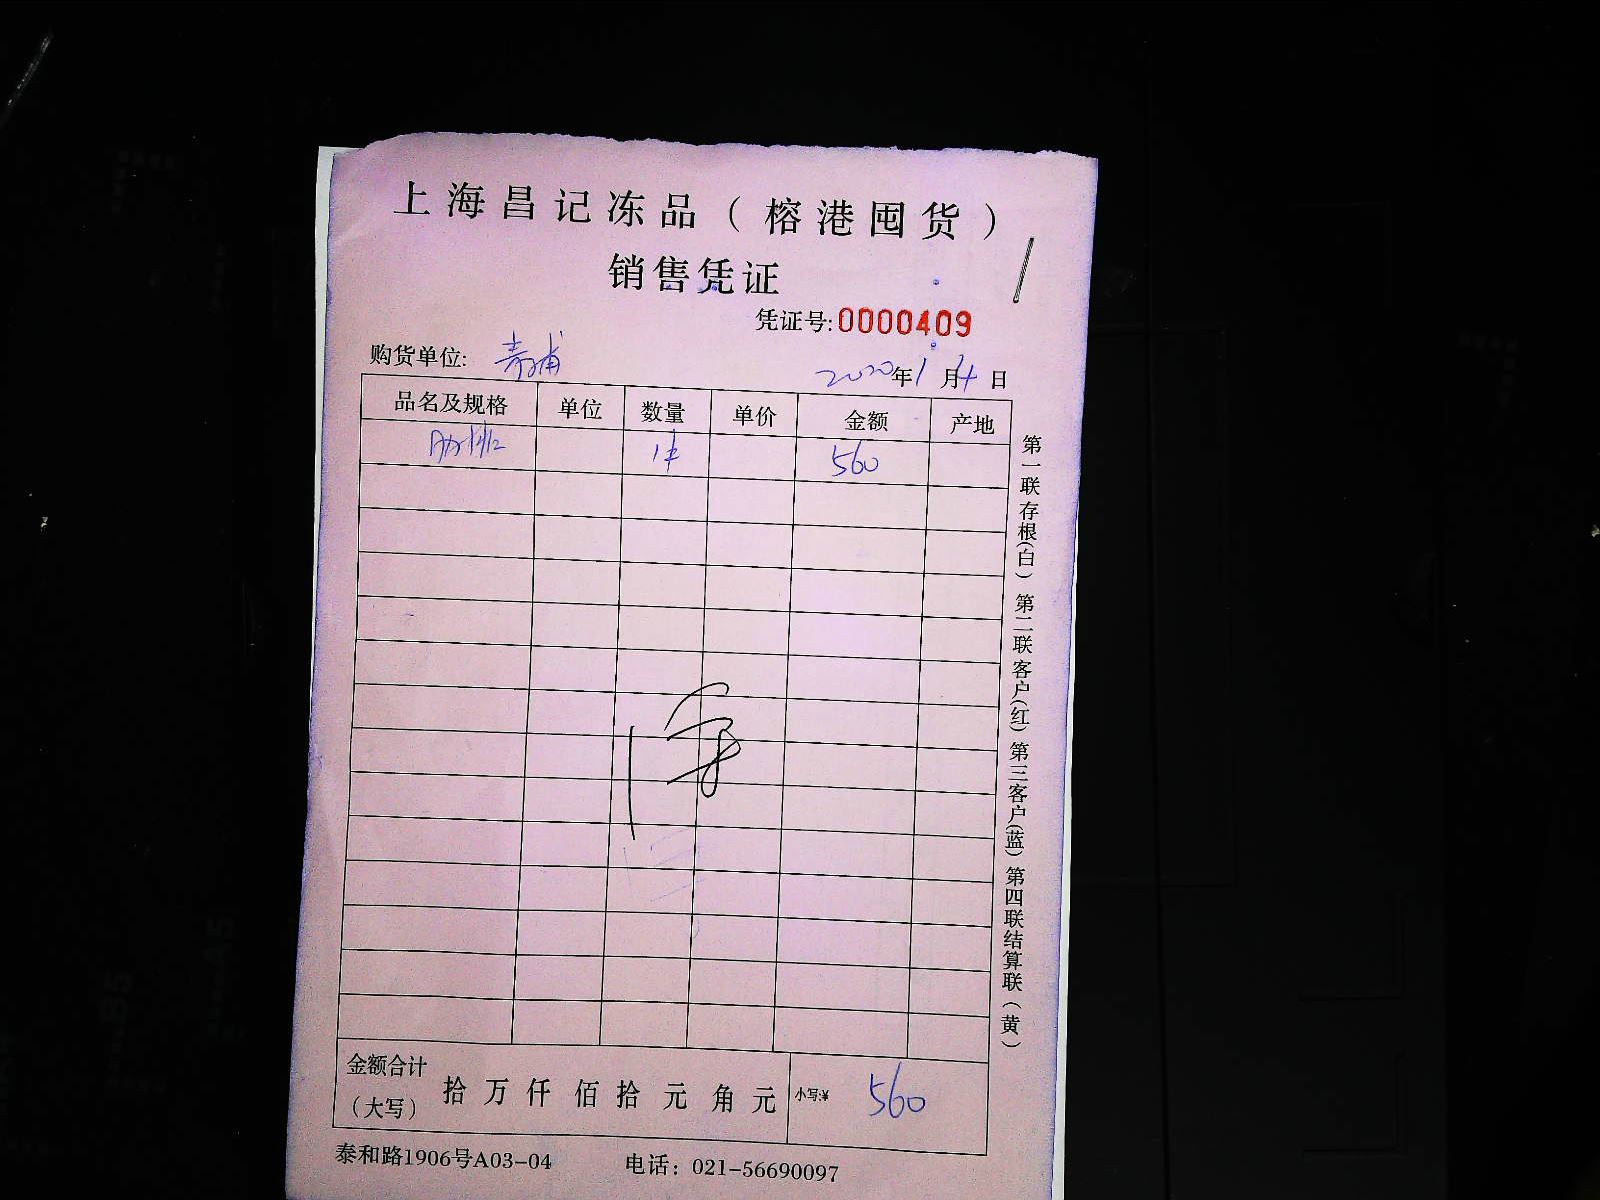 上海昌记冻品（榕港囤货）
销售凭证
凭证号:0000409
购货单位: 青浦
2020年1月4日
品名及规格 单位 数量 单价 金额 产地
肋排 1件 560
第一联存根(白) 第二联客户(红) 第三客户(蓝) 第四联结算联(黄)
金额合计（大写） 拾万仟佰拾元角元 小写:¥ 560
泰和路1906号A03-04 电话：021-56690097